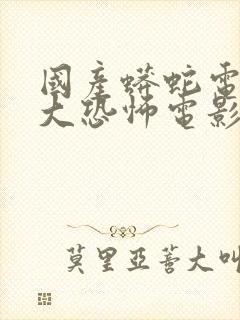 國產蟒蛇電
大恐怖電影
莫里亞蒼大叫